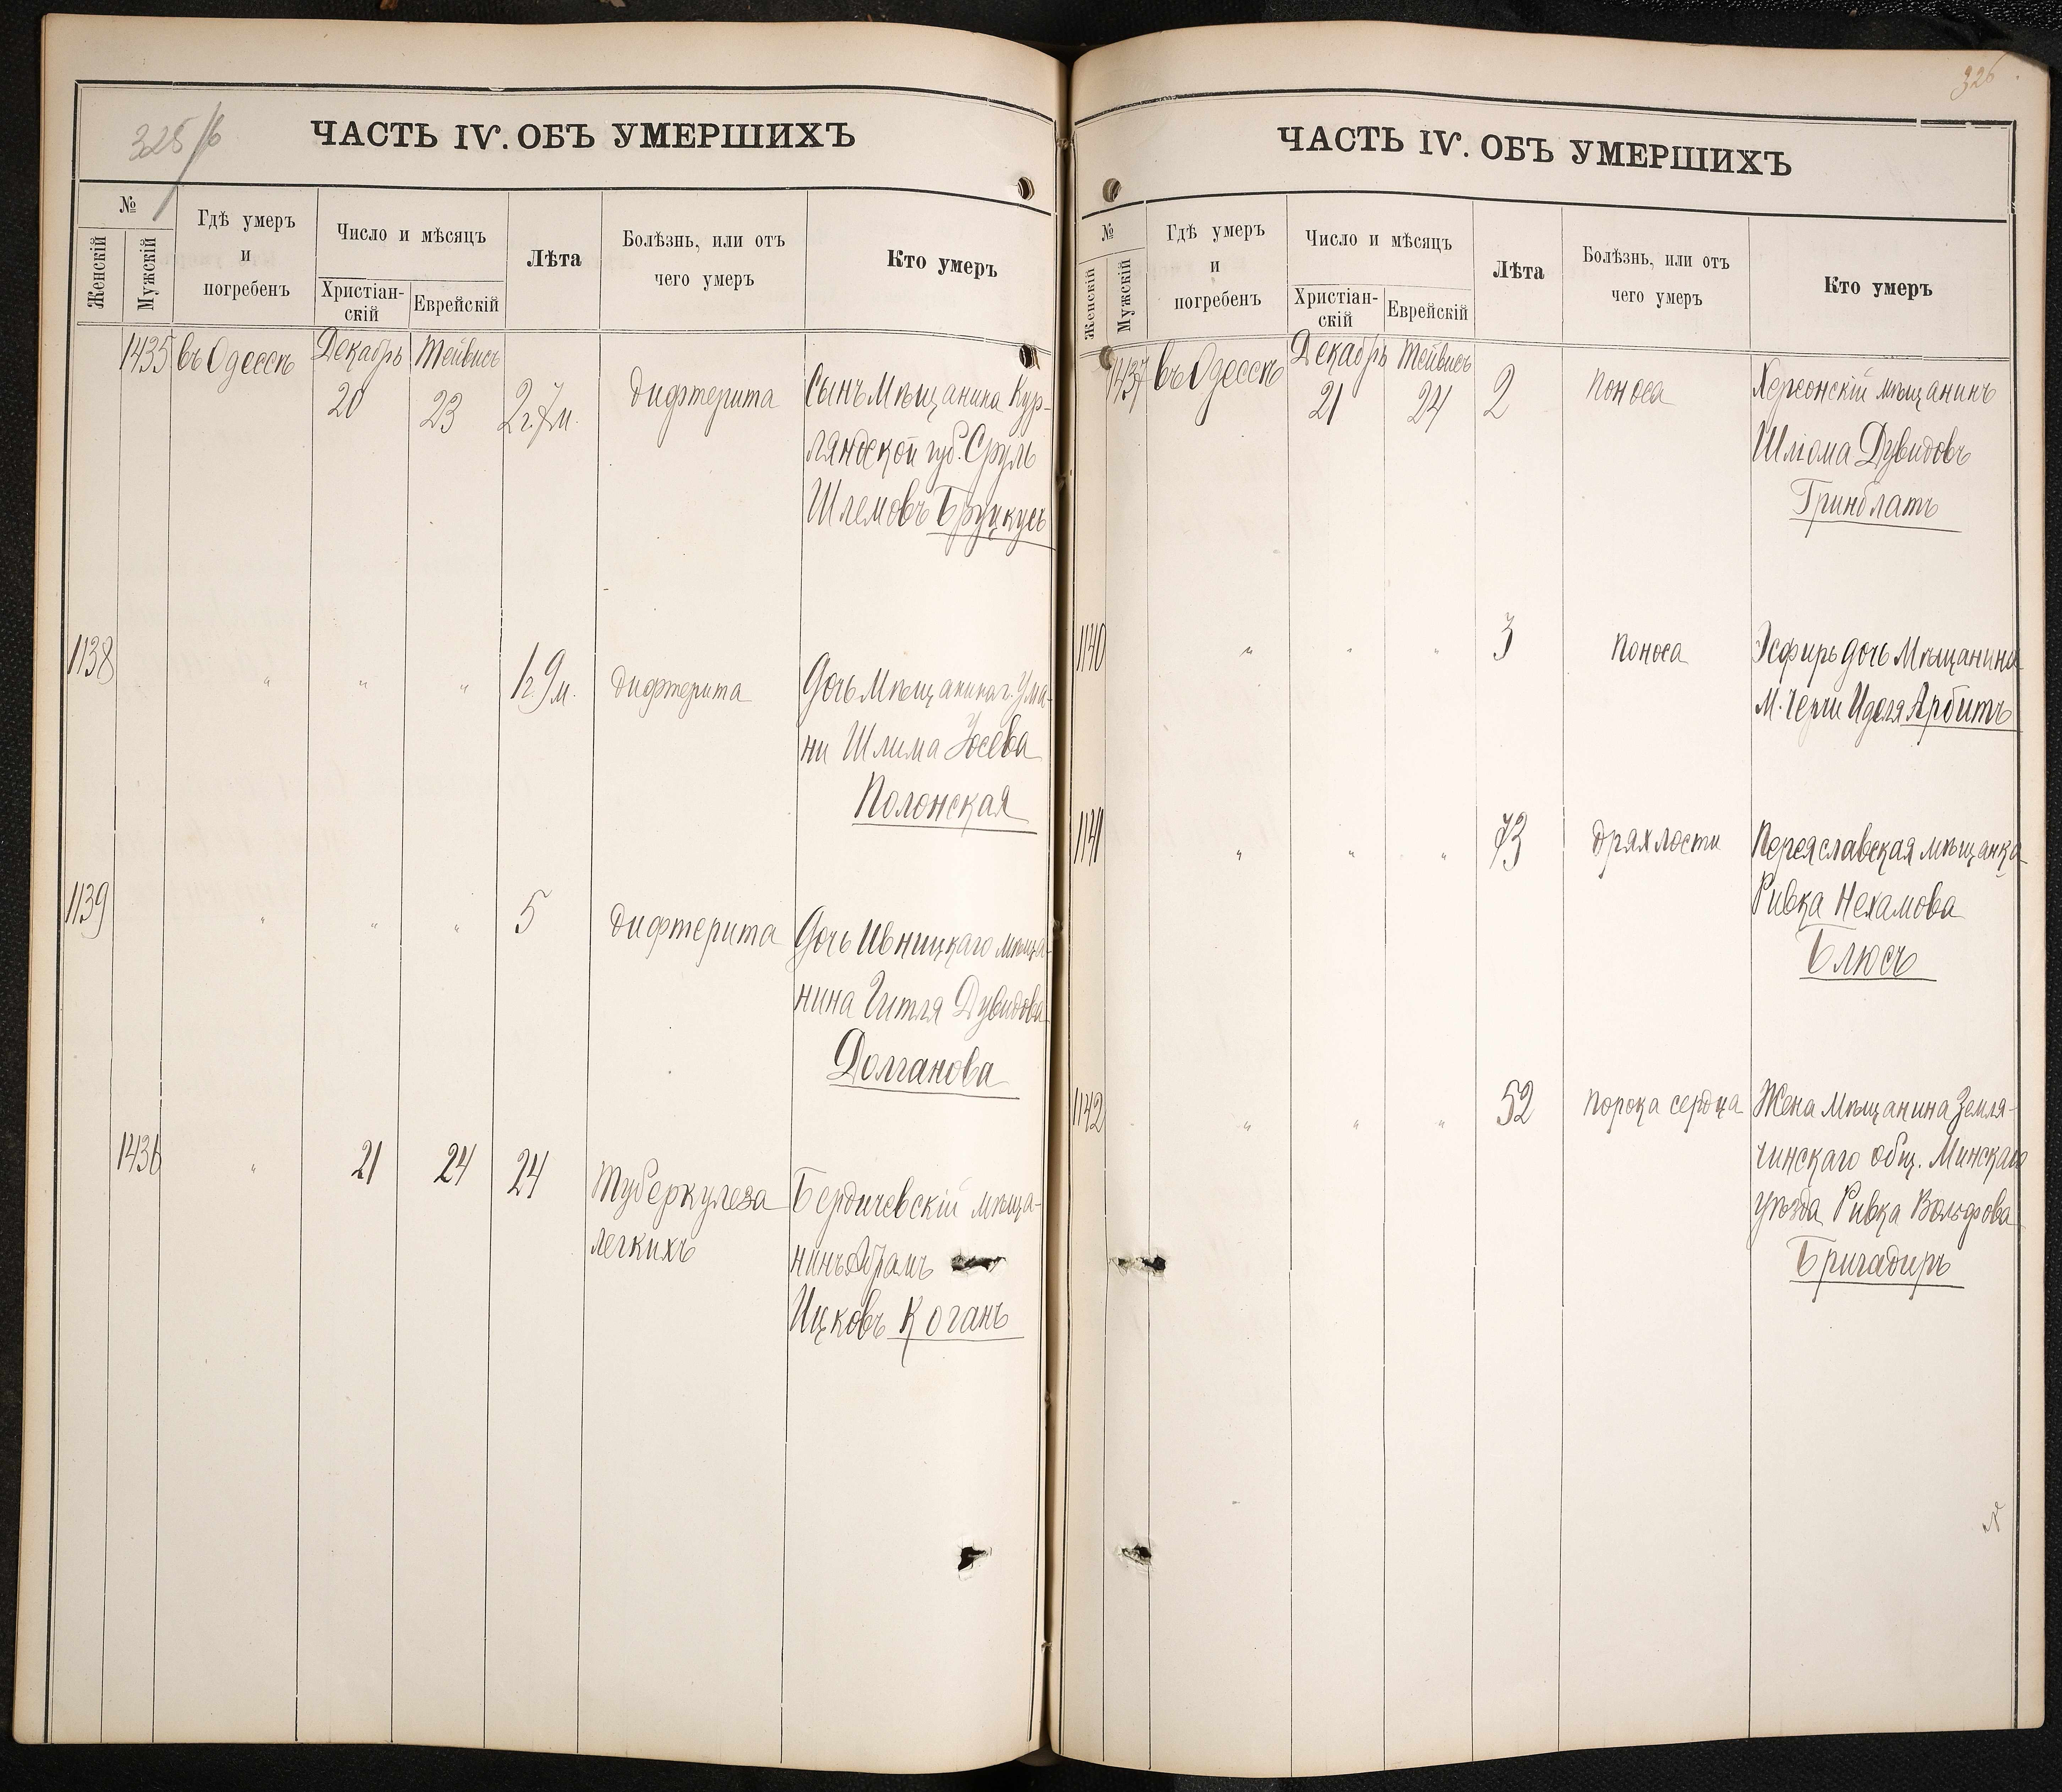 325/б
ЧАСТЬ IV. ОБЪ УМЕРШИХЪ
№
Женскій
Мужскій
Гдѣ умеръ
и
погребенъ
Число и мѣсяцъ
Христіан-
скій
Еврейскій
Лѣта
Болѣзнь, или отъ
чего умеръ
Кто умеръ
1435 въ Одессѣ Декабрь Тейвисъ
20 23 2 г. 7 м. Дифтерита Сынъ Мѣщанина Кур-
ляндской губ. Сруль
Шлемовъ Бруцкусъ
1138 " " " 1 г. 9 м. Дифтерита Дочь Мѣщанина г. Ума-
ни Шлима
Полонская
1139 " " " 5 Дифтерита Дочь Ивницкаго мѣща-
нина Гитля Дувидова
Долганова
1436 " 21 24 24 Туберкулеза Бердичевскій мѣща-
легкихъ нинъ Абрамъ
Ицковъ Коганъ
326
ЧАСТЬ IV. ОБЪ УМЕРШИХЪ
№
Женскій
Мужскій
Гдѣ умеръ
и
погребенъ
Число и мѣсяцъ
Христіан-
скій
Еврейскій
Лѣта
Болѣзнь, или отъ
чего умеръ
Кто умеръ
1437 въ Одессѣ Декабрь Тейвисъ
21 24 2 Поноса Херсонскій мѣщанинъ
Шліома Дувидовъ
Гринблатъ
1140 " " " 3 Поноса Эсфирь дочь Мѣщанина
М. Иделя Арбитъ
1141 " " " 73 Дряхлости Переяславская мѣщанка
Ривка Нехамова
Блюсъ
1142 " " " 52 Порока сердца Жена Мѣщанина Земля-
чинскаго общ. Минскаго
уѣзда Ривка Вольфова
Бригадиръ